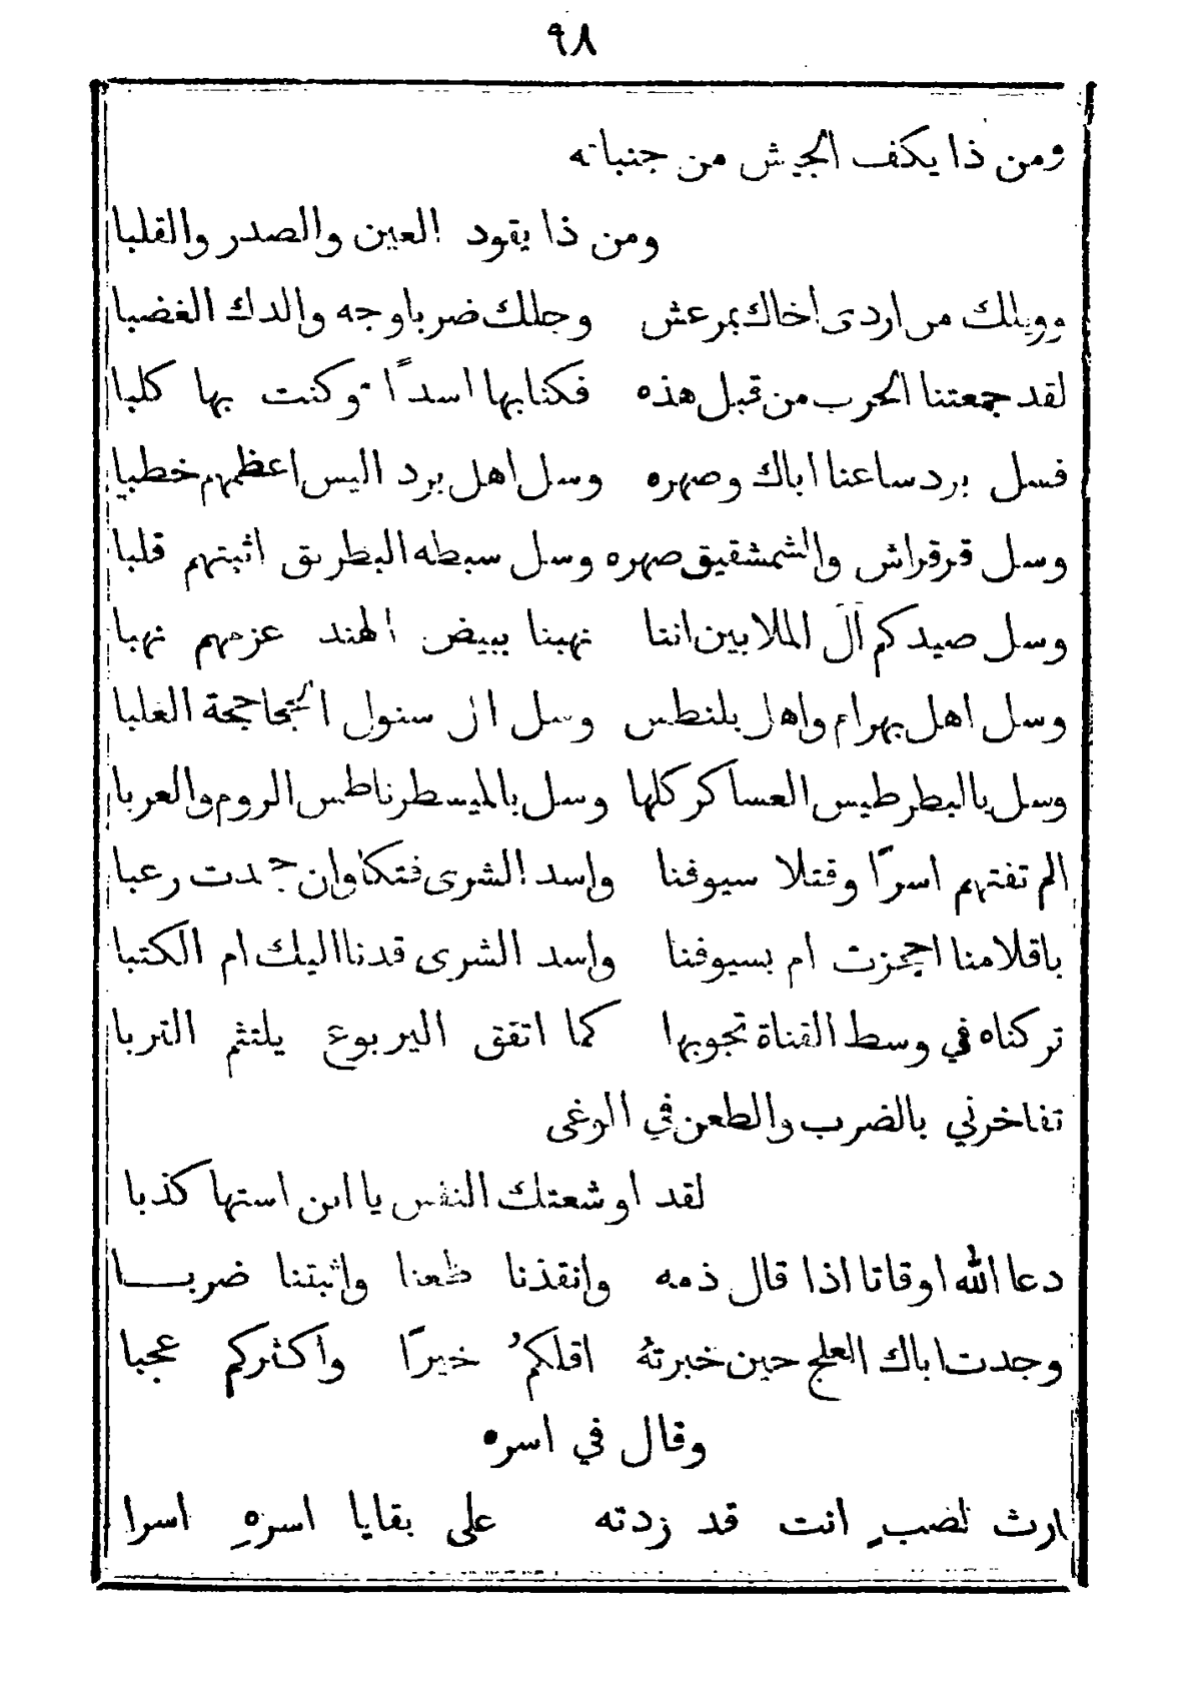 ٩٨
ومن ذا يكف الجيش من جنباته
ومن ذا يقود العين والصدر والقلبا
وويلك من اردى اخاك بمرعش وجلك ضربا وجه والدك الغضبا
لقد جمعتنا الحرب من قبل هذه فكنا بها اسدًا وكنت بها كلبا
فسل بردساعنا اباك وصهره وسل اهل برد اليس اعظمهم خطبا
وسل قرقراش والشمشقيق صهره وسل سبطه البطريق اثبتهم قلبا
وسل صيدكم آل الملابين اننا نهبنا ببيض الهند عزهم نهبا
وسل اهل بهرام واهل بلنطس وسل ال سنول الحجاججة الغلبا
وسل بالبطرطيس العساكر كلها وسل بالميسطرناطس الروم والعربا
الم تفتهم اسرًا وقتلا سيوفنا واسد الشرى فتكا وان جمدت رعبا
باقلامنا اجحزت ام بسيوفنا واسد الشرى قدنا اليك ام الكتبا
تركناه في وسط القناة تجوبها كما اتقق اليربوع يلتثم التربا
تفاخرني بالضرب والطعن في الوغى
لقد اوشعتك النفس يا ابن استها كذبا
دعا الله اوقاتا اذا قال ذمه وانقذنا طعنا واثبتنا ضربـــا
وجدت اباك العلج حين خبرتهُ اقلكمُ خيرًا واكثركم عجبا
وقال في اسره
ارث لصبٍ انت قد زدته على بقايا اسرهِ اسرا